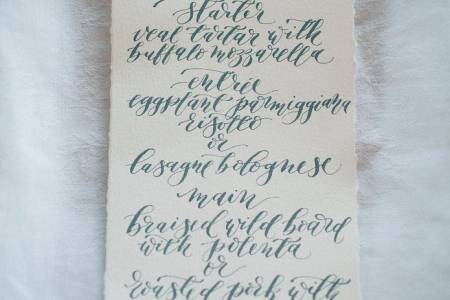 starter
veal tartar with
buffalo mozzarella
entrie
eggplant parmiggiana
risotto
or
lasagne bolognese
main
braised wild board
with polenta
or
roasted pork with